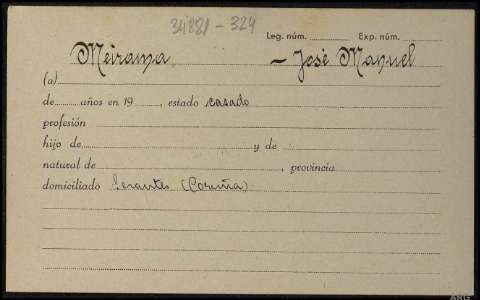 34881 - 324
Leg. núm. Exp. núm.
Meirama. - José Manuel
(a)
de años en 19 , estado casado
profesión
hijo de y de
natural de , provincia
domiciliado Serantes (Coruña)
ARG